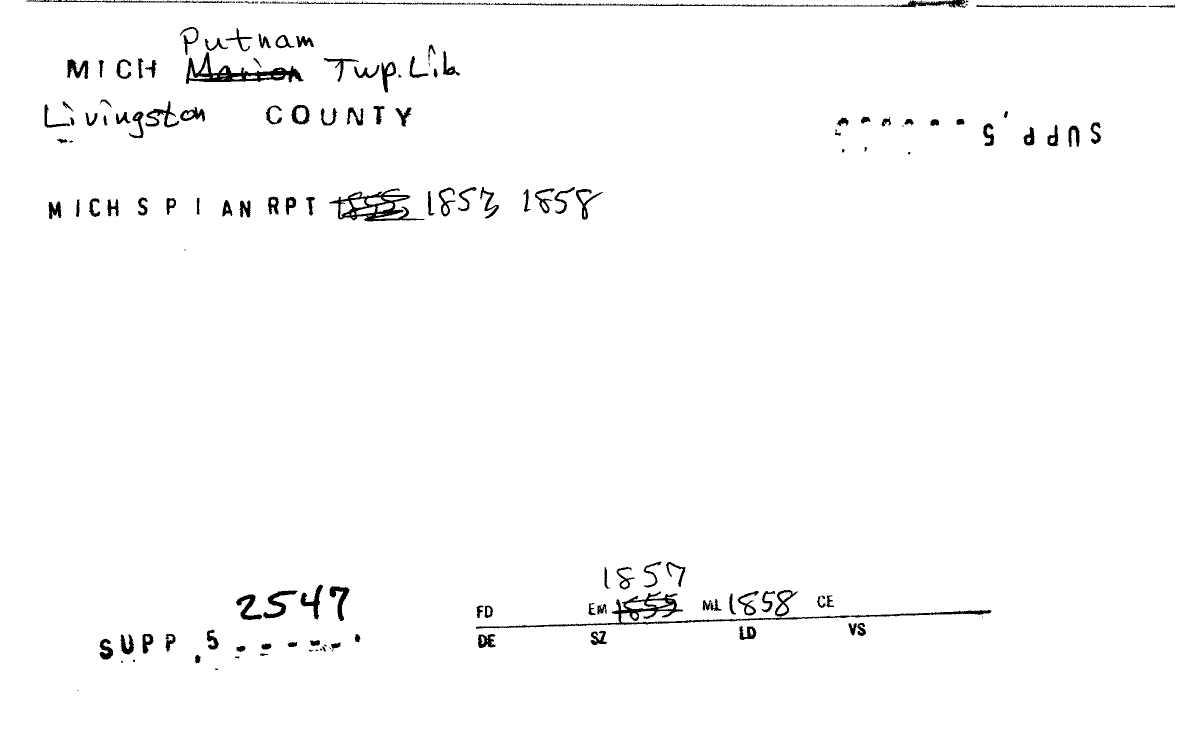 Putnam
MICH Marion Twp. Lib.
Livingston COUNTY
SUPP.5
MICH S P I AN RPT 1855 1857 1858
1857
2547
FD EM 1855 ML 1858 CE
SUPP.5
DE SZ LD VS